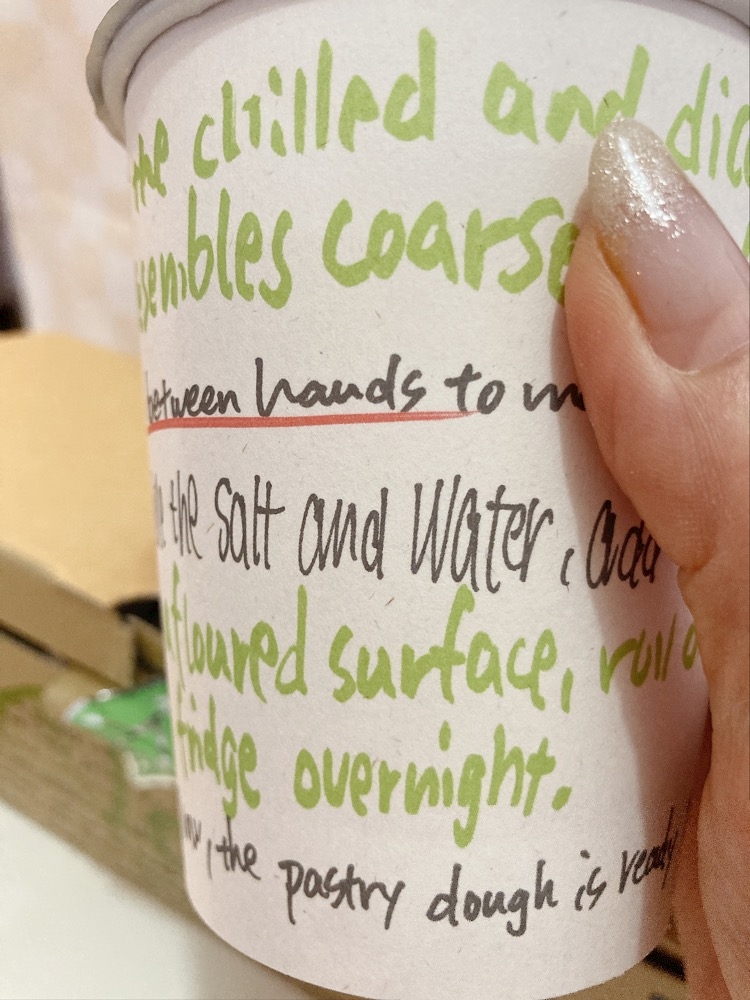 the chilled and
coarse
between hands to
the salt and water, add
floured surface, roll
fridge overnight.
, the pastry dough is ready